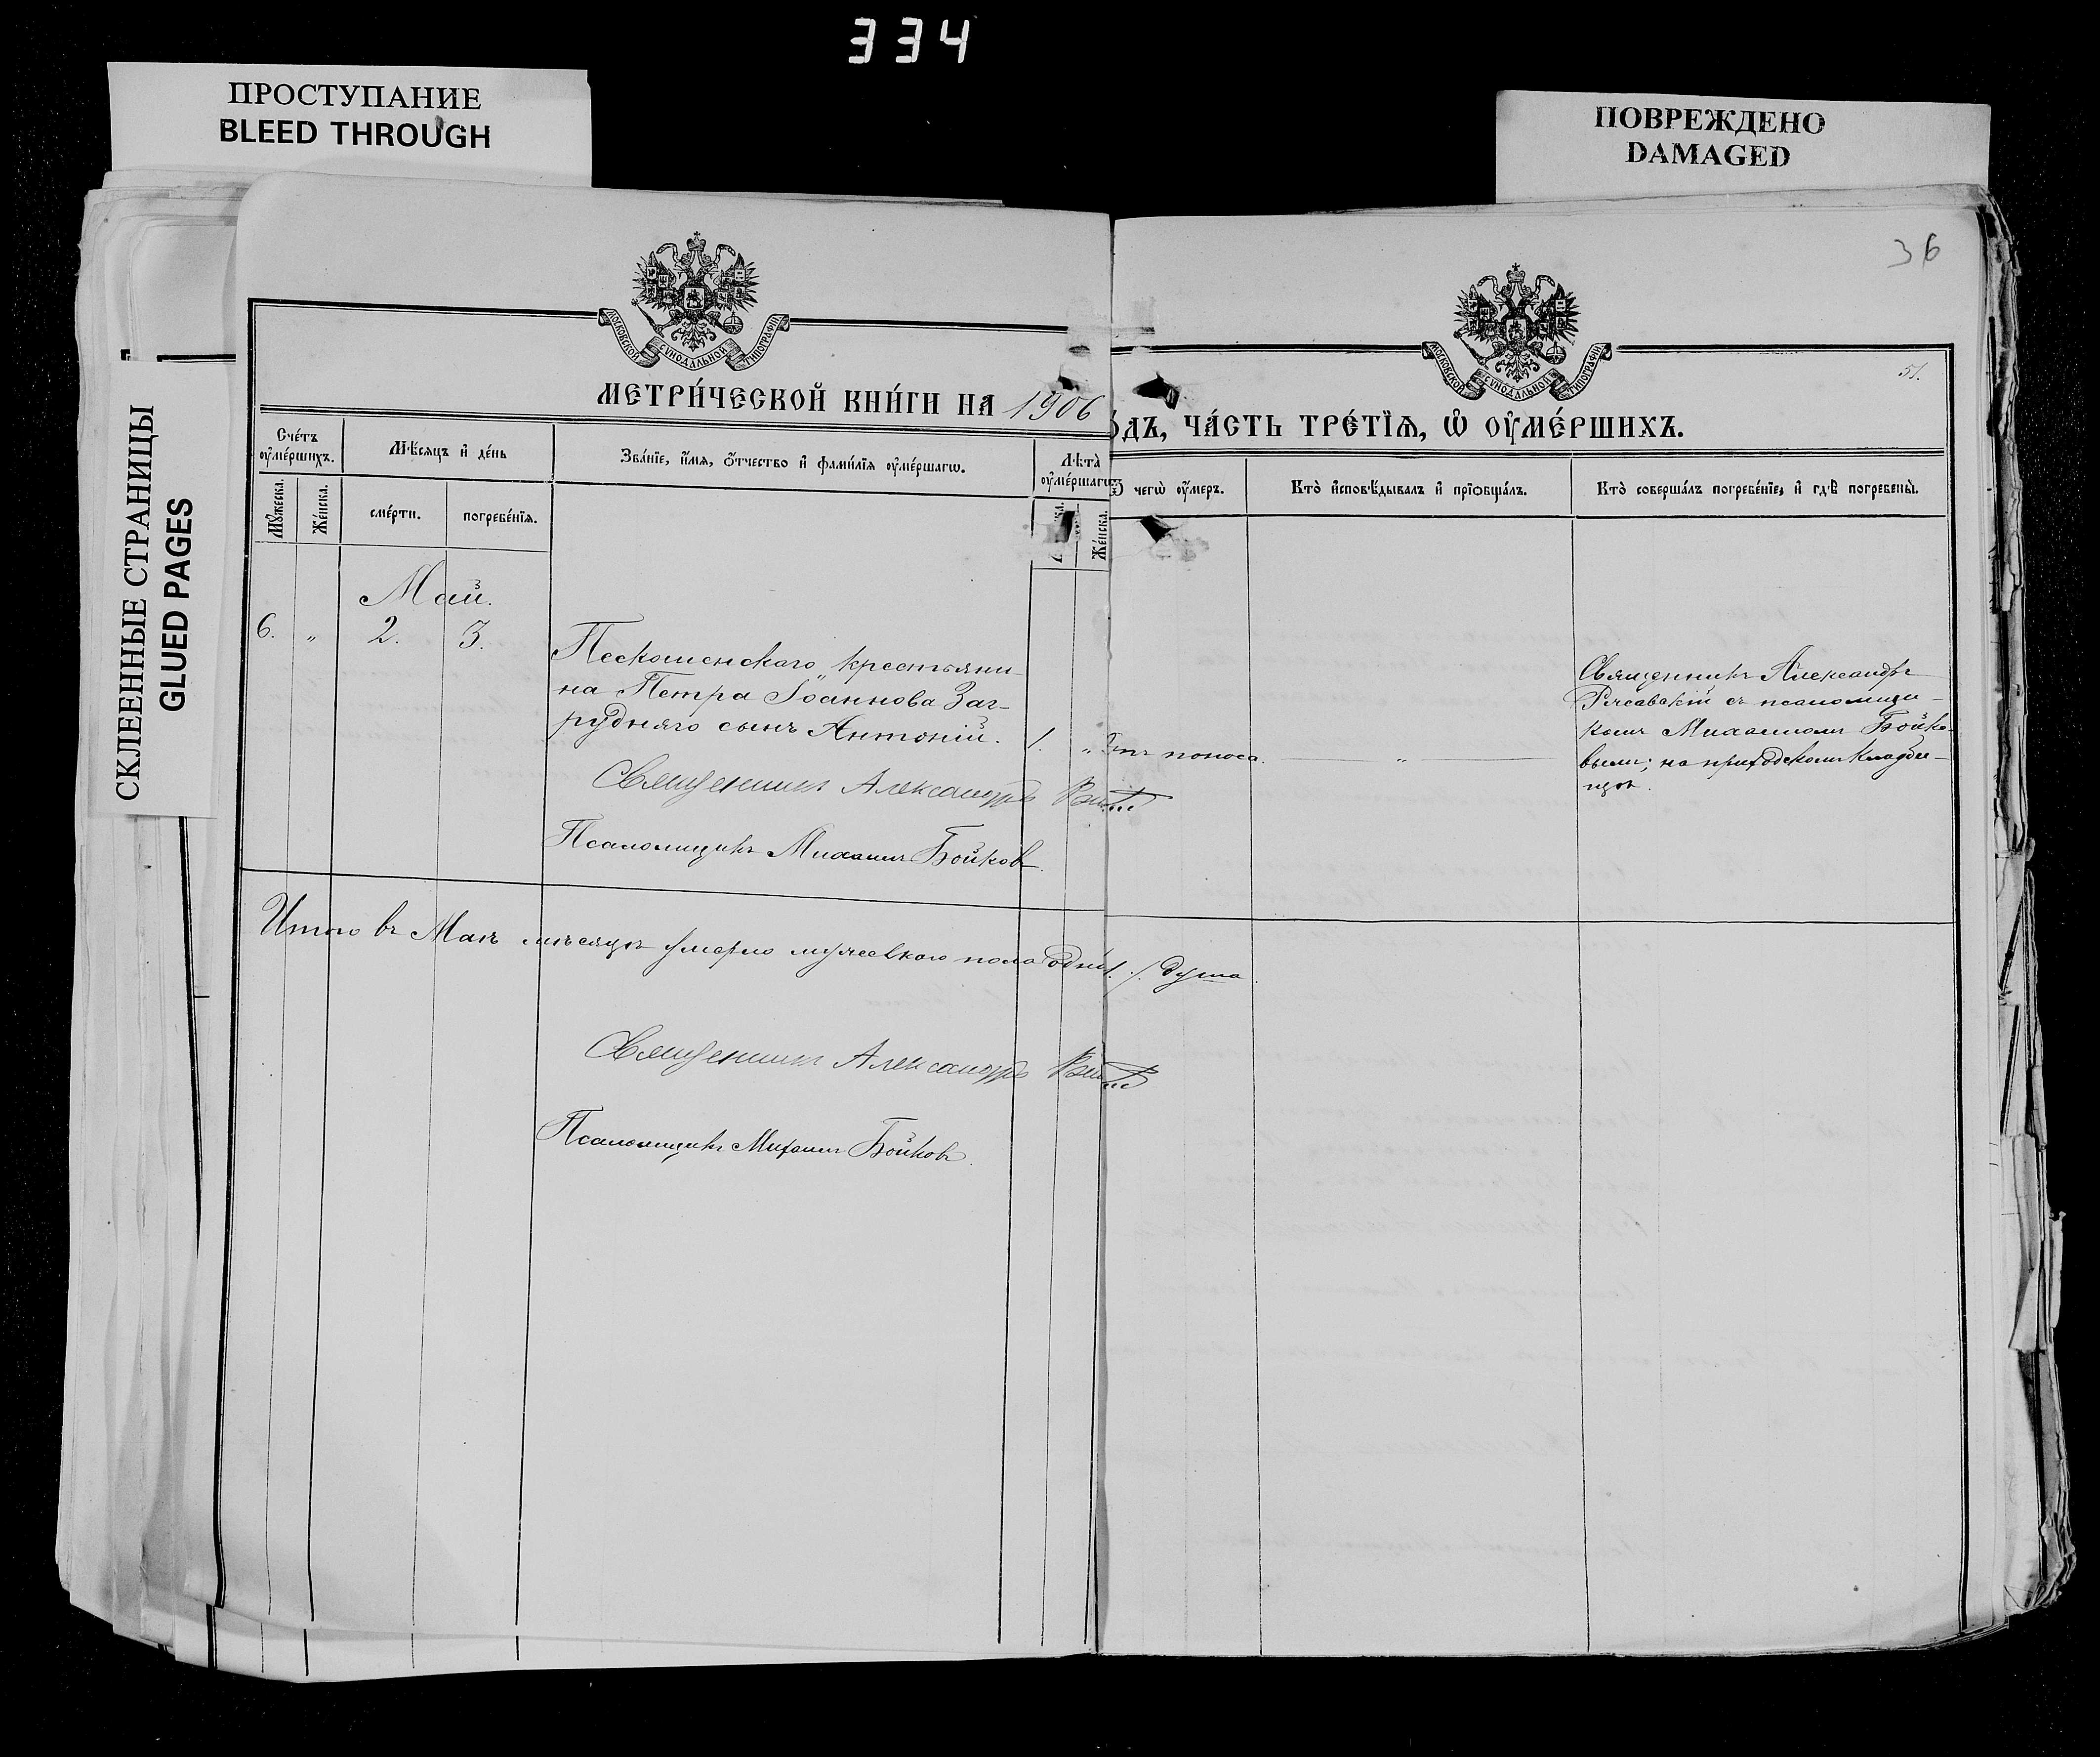 334
ПРОСТУПАНИЕ
BLEED THROUGH
ПОВРЕЖДЕНО
DAMAGED
СКЛЕЕННЫЕ СТРАНИЦЫ
GLUED PAGES
36
51.
МОСКОВСКОЙ СѴНОДАЛЬНОЙ ТИПОГРАФІИ
МОСКОВСКОЙ СѴНОДАЛЬНОЙ ТИПОГРАФІИ
МЕТРИ́ЧЕСКОЙ КНИ́ГИ НА 1906
ѻ́дъ, ЧА́СТЬ ТРЕ́ТЇѦ, Ѡ ОУ҆МЕ́РШИХЪ.
Сче́тъ оу҆ме́ршихъ.
Мꙋ́жеска.
Же́нска.
Мѣ́сяцъ и҆ де́нь
сме́рти.
погребе́нїя.
Зва́нїе, и҆́мя, ѻ҆́тчество и҆ фами́лїя оу҆ме́ршагѡ.
Лѣ̀та̀ оу҆ме́ршагѡ
Же́нска.
чегѡ̀ оу҆́меръ.
Кто̀ и҆сповѣ́дывалъ и҆ прїѻбща́лъ.
Кто̀ соверша́лъ погребе́нїе, и҆ гдѣ̀ погребены̀.
Май.
6. „ 2. 3.
Пескошенскаго крестьяни-
на Петра Іоаннова Заг-
рудняго сынъ Антоній. 1. „ Отъ поноса. „
Священникъ Александръ
съ псаломщи-
комъ Михаиломъ Бойко-
вымъ; на приходскомъ кладби-
щѣ.
Священникъ Александръ
Псаломщикъ Михаилъ Бойковъ.
Итого въ Маѣ мѣсяцѣ умерло мужескаго пола 1. душа.
Священникъ Александръ
Псаломщикъ Михаилъ Бойковъ.